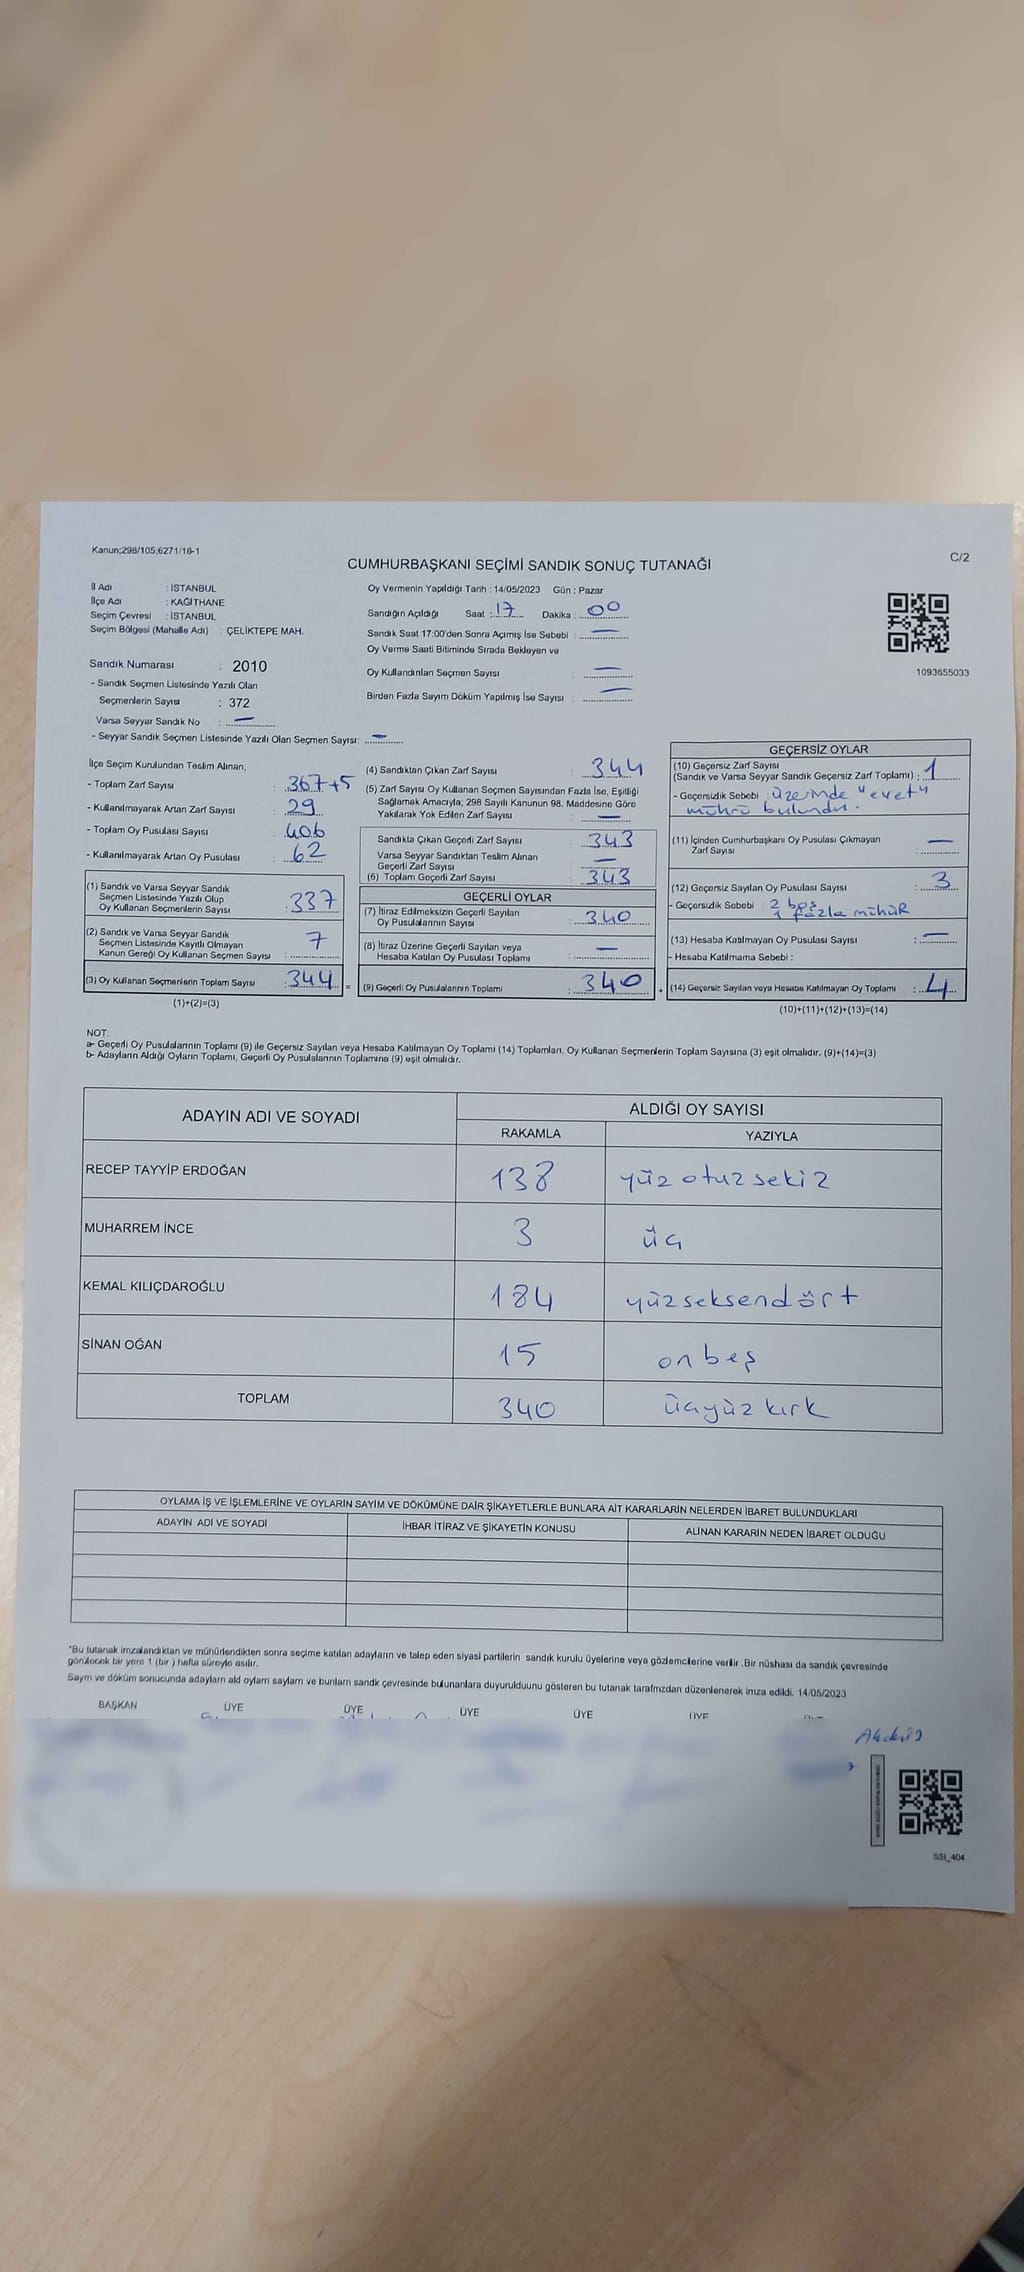 Kanun;298/105;6271/18-1
C/2
CUMHURBAŞKANI SEÇİMİ SANDIK SONUÇ TUTANAĞI
İl Adı : İSTANBUL
İlçe Adı : KAĞITHANE
Seçim Çevresi : İSTANBUL
Seçim Bölgesi (Mahalle Adı) : ÇELİKTEPE MAH.
Sandık Numarası : 2010
- Sandık Seçmen Listesinde Yazılı Olan
Seçmenlerin Sayısı : 372
Varsa Seyyar Sandık No : —
- Seyyar Sandık Seçmen Listesinde Yazılı Olan Seçmen Sayısı: —
Oy Vermenin Yapıldığı Tarih : 14/05/2023 Gün : Pazar
Sandığın Açıldığı Saat : 17 Dakika : 00
Sandık Saat 17:00'den Sonra Açımış İse Sebebi : —
Oy Verme Saati Bitiminde Sırada Bekleyen ve
Oy Kullandırılan Seçmen Sayısı : —
Birden Fazla Sayım Döküm Yapılmış İse Sayısı : —
1093655033
İlçe Seçim Kurulundan Teslim Alınan,
- Toplam Zarf Sayısı : 367+5
- Kullanılmayarak Artan Zarf Sayısı : 29
- Toplam Oy Pusulası Sayısı : 406
- Kullanılmayarak Artan Oy Pusulası : 62
(1) Sandık ve Varsa Seyyar Sandık
Seçmen Listesinde Yazılı Olup
Oy Kullanan Seçmenlerin Sayısı : 337
(2) Sandık ve Varsa Seyyar Sandık
Seçmen Listesinde Kayıtlı Olmayan
Kanun Gereği Oy Kullanan Seçmen Sayısı : 7
(3) Oy Kullanan Seçmenlerin Toplam Sayısı : 344 =
(1)+(2)=(3)
(4) Sandıktan Çıkan Zarf Sayısı : 344
(5) Zarf Sayısı Oy Kullanan Seçmen Sayısından Fazla İse, Eşitliği
Sağlamak Amacıyla, 298 Sayılı Kanunun 98. Maddesine Göre
Yakılarak Yok Edilen Zarf Sayısı : —
Sandıkta Çıkan Geçerli Zarf Sayısı : 343
Varsa Seyyar Sandıktan Teslim Alınan
Geçerli Zarf Sayısı : —
(6) Toplam Geçerli Zarf Sayısı : 343
GEÇERLİ OYLAR
(7) İtiraz Edilmeksizin Geçerli Sayılan
Oy Pusulalarının Sayısı : 340
(8) İtiraz Üzerine Geçerli Sayılan veya
Hesaba Katılan Oy Pusulası Toplamı : —
(9) Geçerli Oy Pusulalarının Toplamı : 340 +
GEÇERSİZ OYLAR
(10) Geçersiz Zarf Sayısı
(Sandık ve Varsa Seyyar Sandık Geçersiz Zarf Toplamı) : 1
- Geçersizlik Sebebi : üzerinde "evet"
mührü bulundu.
(11) İçinden Cumhurbaşkanı Oy Pusulası Çıkmayan
Zarf Sayısı : —
(12) Geçersiz Sayılan Oy Pusulası Sayısı : 3
- Geçersizlik Sebebi : 2 boş
1 fazla mühür
(13) Hesaba Katılmayan Oy Pusulası Sayısı : —
- Hesaba Katılmama Sebebi :
(14) Geçersiz Sayılan veya Hesaba Katılmayan Oy Toplamı : 4
(10)+(11)+(12)+(13)=(14)
NOT:
a- Geçerli Oy Pusulalarının Toplamı (9) ile Geçersiz Sayılan veya Hesaba Katılmayan Oy Toplamı (14) Toplamları, Oy Kullanan Seçmenlerin Toplam Sayısına (3) eşit olmalıdır. (9)+(14)=(3)
b- Adayların Aldığı Oyların Toplamı, Geçerli Oy Pusulalarının Toplamına (9) eşit olmalıdır.
ADAYIN ADI VE SOYADI
ALDIĞI OY SAYISI
RAKAMLA YAZIYLA
RECEP TAYYİP ERDOĞAN 138 yüz otuz sekiz
MUHARREM İNCE 3 üç
KEMAL KILIÇDAROĞLU 184 yüzseksendört
SİNAN OĞAN 15 onbeş
TOPLAM 340 üçyüz kırk
OYLAMA İŞ VE İŞLEMLERİNE VE OYLARIN SAYIM VE DÖKÜMÜNE DAİR ŞİKAYETLERLE BUNLARA AİT KARARLARIN NELERDEN İBARET BULUNDUKLARI
ADAYIN ADI VE SOYADI İHBAR İTİRAZ VE ŞİKAYETİN KONUSU ALINAN KARARIN NEDEN İBARET OLDUĞU
*Bu tutanak imzalandıktan ve mühürlendikten sonra seçime katılan adayların ve talep eden siyasi partilerin sandık kurulu üyelerine veya gözlemcilerine verilir .Bir nüshası da sandık çevresinde
görülecek bir yere 1 (bir ) hafta süreyle asılır.
Sayım ve döküm sonucunda adayların ald oyların sayıların ve bunların sandık çevresinde bulunanlara duyurulduunu gösteren bu tutanak tarafımızdan düzenlenerek imza edildi. 14/05/2023
BAŞKAN ÜYE ÜYE ÜYE ÜYE ÜYE
SSI_404